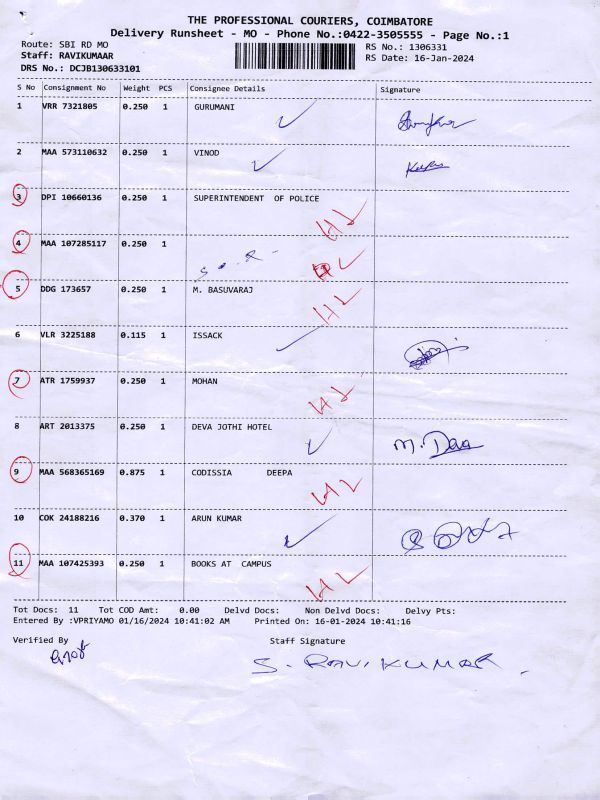 THE PROFESSIONAL COURIERS, COIMBATORE
Delivery Runsheet - MO - Phone No.:0422-3505555 - Page No.:1
Route: SBI RD MO
RS No.: 1306331
Staff: RAVIKUMAAR
RS Date: 16-Jan-2024
DRS No.: DCJB130633101
S No Consignment No Weight PCS Consignee Details Signature
1 VRR 7321805 0.250 1 GURUMANI
2 MAA 573110632 0.250 1 VINOD
3 DPI 10660136 0.250 1 SUPERINTENDENT OF POLICE
4 MAA 107285117 0.250 1
5 DDG 173657 0.250 1 M. BASUVARAJ
6 VLR 3225188 0.115 1 ISSACK
7 ATR 1759937 0.250 1 MOHAN
8 ART 2013375 0.250 1 DEVA JOTHI HOTEL M. Daa
9 MAA 568365169 0.875 1 CODISSIA DEEPA
10 COK 24188216 0.370 1 ARUN KUMAR
11 MAA 107425393 0.250 1 BOOKS AT CAMPUS
Tot Docs: 11 Tot COD Amt: 0.00 Delvd Docs: Non Delvd Docs: Delvy Pts:
Entered By :VPRIYAMO 01/16/2024 10:41:02 AM Printed On: 16-01-2024 10:41:16
Verified By Staff Signature
S. RAVIKUMAR